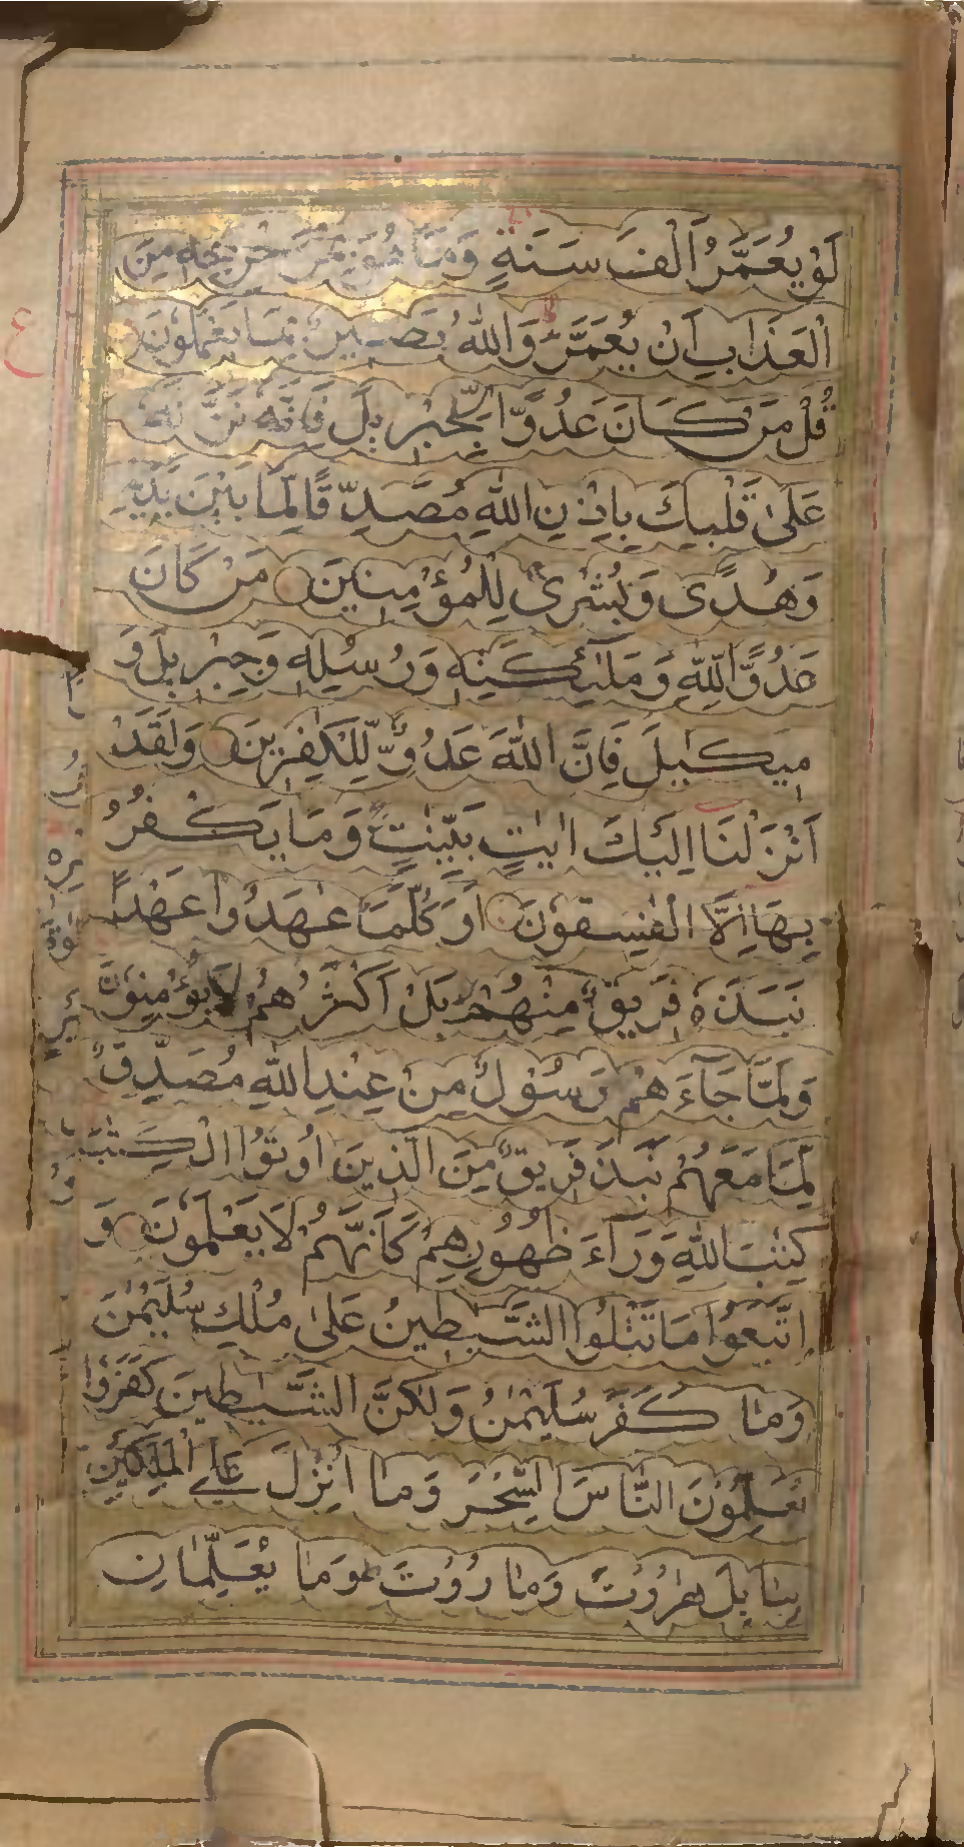 لَوْ يُعَمَّرُ اَلْفَ سَنَةٍ وَمَا هُوَ بِمُزَحْزِحِهٖ مِنَ
الْعَذَابِ اَنْ يُّعَمَّرَ وَاللّٰهُ بَصِيْرٌ بِمَا يَعْمَلُوْنَ
قُلْ مَنْ كَانَ عَدُوًّا لِّجِبْرِيْلَ فَاِنَّهٗ نَزَّلَهٗ
عَلٰى قَلْبِكَ بِاِذْنِ اللّٰهِ مُصَدِّقًا لِّمَا بَيْنَ يَدَيْهِ
وَهُدًى وَّبُشْرٰى لِلْمُؤْمِنِيْنَ مَنْ كَانَ
عَدُوًّا لِّلّٰهِ وَمَلٰٓئِكَتِهٖ وَرُسُلِهٖ وَجِبْرِيْلَ وَ
مِيْكٰىلَ فَاِنَّ اللّٰهَ عَدُوٌّ لِّلْكٰفِرِيْنَ وَلَقَدْ
اَنْزَلْنَا اِلَيْكَ اٰيٰتٍ بَيِّنٰتٍ وَمَا يَكْفُرُ
بِهَا اِلَّا الْفٰسِقُوْنَ اَوَكُلَّمَا عٰهَدُوْا عَهْدًا
نَبَذَهٗ فَرِيْقٌ مِّنْهُمْ بَلْ اَكْثَرُهُمْ لَا يُؤْمِنُوْنَ
وَلَمَّا جَآءَهُمْ رَسُوْلٌ مِّنْ عِنْدِ اللّٰهِ مُصَدِّقٌ
لِّمَا مَعَهُمْ نَبَذَ فَرِيْقٌ مِّنَ الَّذِيْنَ اُوْتُوا الْكِتٰبَ
كِتٰبَ اللّٰهِ وَرَآءَ ظُهُوْرِهِمْ كَاَنَّهُمْ لَا يَعْلَمُوْنَ وَ
اتَّبَعُوْا مَا تَتْلُوا الشَّيٰطِيْنُ عَلٰى مُلْكِ سُلَيْمٰنَ
وَمَا كَفَرَ سُلَيْمٰنُ وَلٰكِنَّ الشَّيٰطِيْنَ كَفَرُوْا
يُعَلِّمُوْنَ النَّاسَ السِّحْرَ وَمَا اُنْزِلَ عَلَى الْمَلَكَيْنِ
بِبَابِلَ هَارُوْتَ وَمَارُوْتَ ط وَمَا يُعَلِّمَانِ
ع